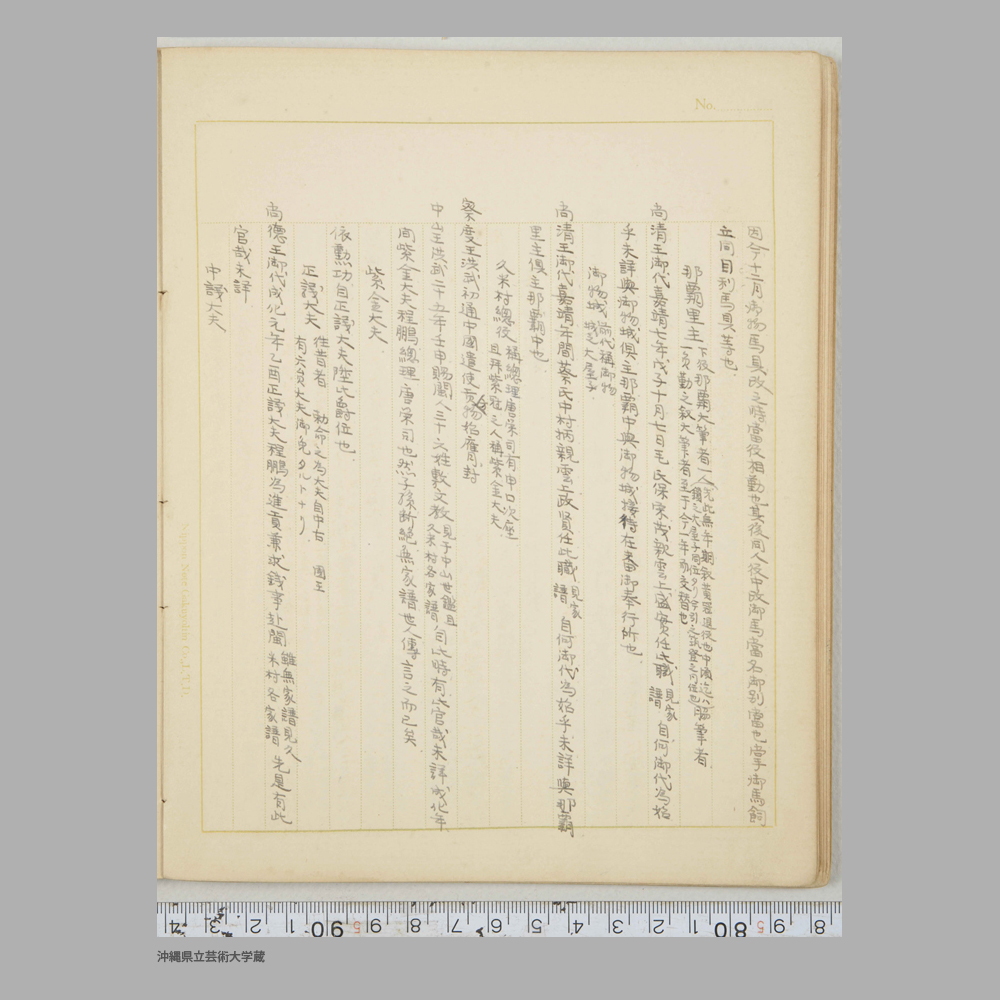 No.
因今十二月御物馬具改之時當役相勤也其後同人役中改御馬當名御別當也掌手御馬飼
並同目利馬具等也
那覇里主
下役那覇大筆者一人
一員勤之叙大筆者至于今一年而交替也
脇筆者
尚清王御代嘉靖七年戊子十月七日毛氏保栄茂親雲上盛實任此職
見家
譜
自何御代為始
乎未詳與御物城俱主那覇中與御物城接待在番御奉行所也
御物城
前代稱御物
城之大屋子
尚清王御代嘉靖年間蔡氏中村柄親雲上政賢任此職
見家
譜
自何御代為始乎未詳與那覇
里主俱主那覇中也
久米村總役
稱總理唐榮司有申口次座
且拜紫冠之人稱紫金大夫
察度王洪武初通中國遣使貢物始膺冊封
中山王洪武二十五年壬申賜閩人三十六姓敷文教
見于中山世鑑且
久米村各家譜
自此時有此官哉未詳成化年
間紫金大夫程鵬總理唐榮司也然子孫斷絕無家譜世人傳言之而已矣
紫金大夫
依勲功自正議大夫陞此爵位也
正議大夫
往昔者 勅命之為大夫自中古 國王
有六員大夫御免タルトナリ
尚德王御代成化元年乙酉正議大夫程鵬為進貢兼求錢事赴閩
雖無家譜見久
米村各家譜
先是有此
官哉未詳
中議大夫
沖縄県立芸術大学蔵